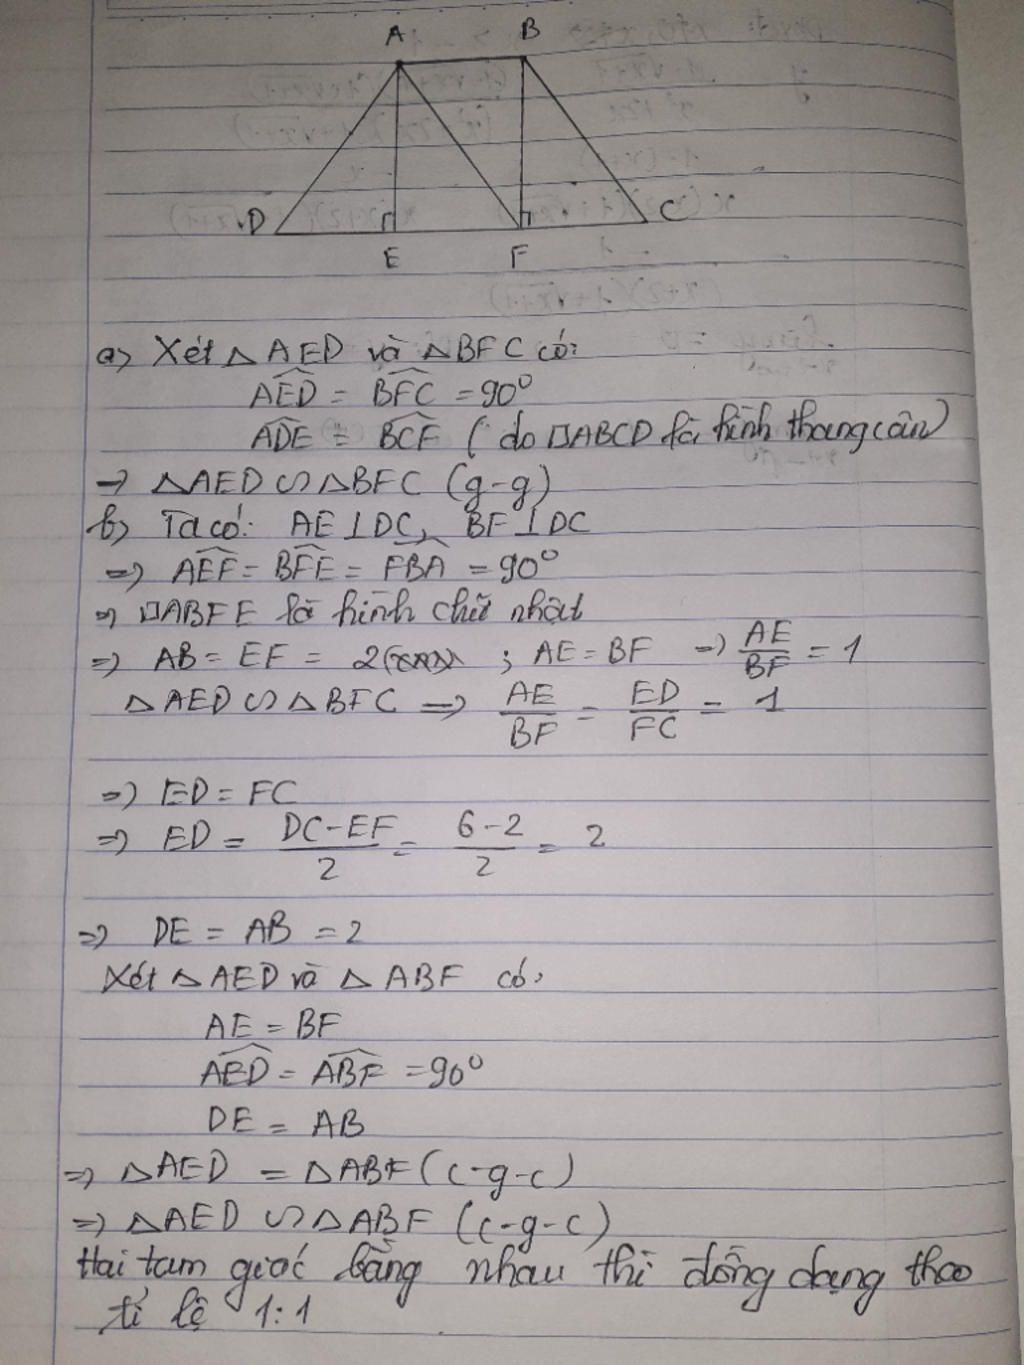 A B
D C
E F
a) Xét △AED và △BFC có:
AED = BFC = 90°
ADE = BCF (do □ABCD là hình thang cân)
→ △AED ∽ △BFC (g-g)
b) Ta có: AE ⊥ DC, BF ⊥ DC
=> AEF = BFE = FBA = 90°
=> □ABFE là hình chữ nhật
=> AB = EF = 2 ; AE = BF => AE/BF = 1
△AED ∽ △BFC => AE/BF = ED/FC = 1
=> ED = FC
=> ED = DC-EF/2 = 6-2/2 = 2
=> DE = AB = 2
Xét △AED và △ABF có:
AE = BF
AED = ABF = 90°
DE = AB
=> △AED = △ABF (c-g-c)
=> △AED ∽ △ABF (c-g-c)
Hai tam giác bằng nhau thì đồng dạng theo
tỉ lệ 1:1